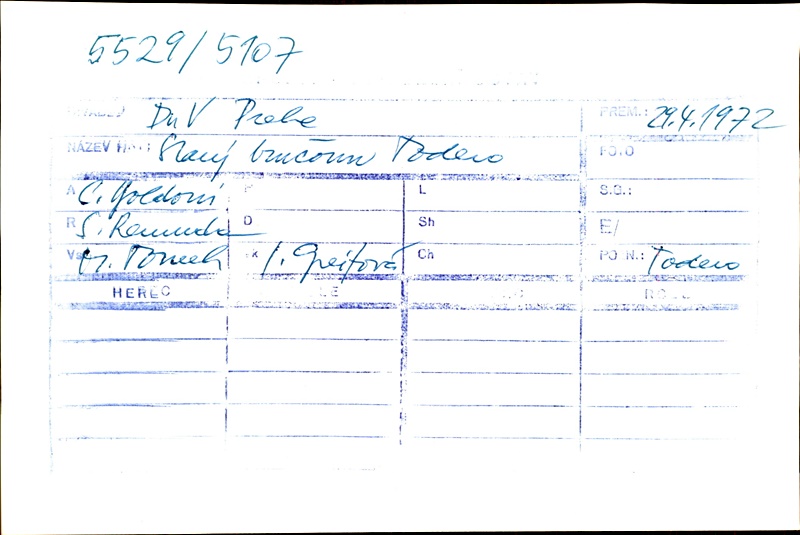 5529/5107
DNV Praha PREM.: 29.4.1972
NÁZEV HRY: Starý bručoun Todero FOTO
A C. Goldoni P L S.G.:
R S. Remunda D Sh E/
Vs K I. Greifová Ch PO N.: Todero
HEREC ROLE